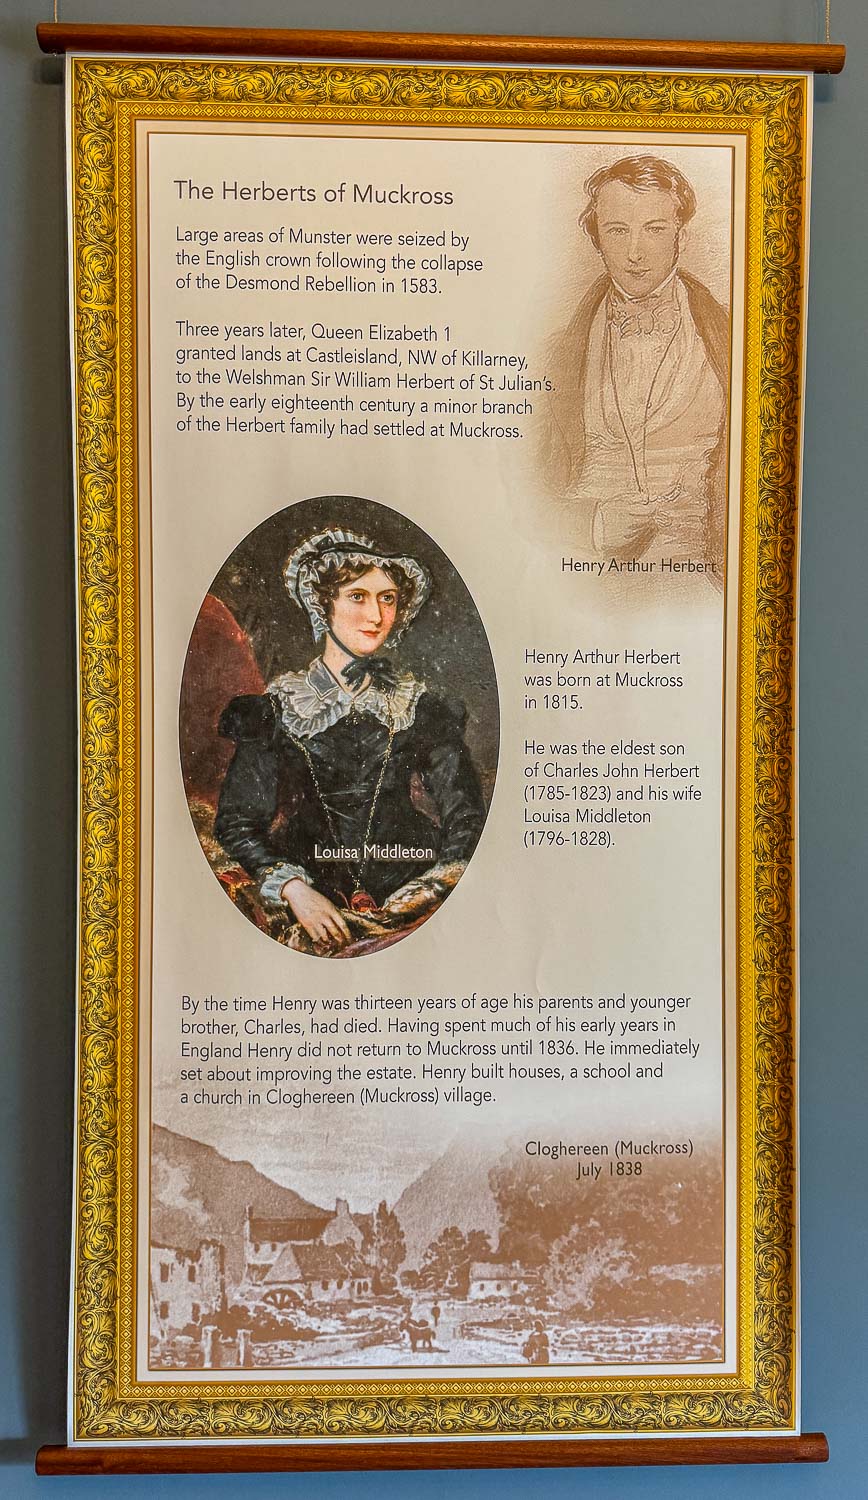 The Herberts of Muckross
Large areas of Munster were seized by
the English crown following the collapse
of the Desmond Rebellion in 1583.
Three years later, Queen Elizabeth 1
granted lands at Castleisland, NW of Killarney,
to the Welshman Sir William Herbert of St Julian's.
By the early eighteenth century a minor branch
of the Herbert family had settled at Muckross.
Henry Arthur Herbert
Henry Arthur Herbert
was born at Muckross
in 1815.
He was the eldest son
of Charles John Herbert
(1785-1823) and his wife
Louisa Middleton
(1796-1828).
Louisa Middleton
By the time Henry was thirteen years of age his parents and younger
brother, Charles, had died. Having spent much of his early years in
England Henry did not return to Muckross until 1836. He immediately
set about improving the estate. Henry built houses, a school and
a church in Cloghereen (Muckross) village.
Cloghereen (Muckross)
July 1838